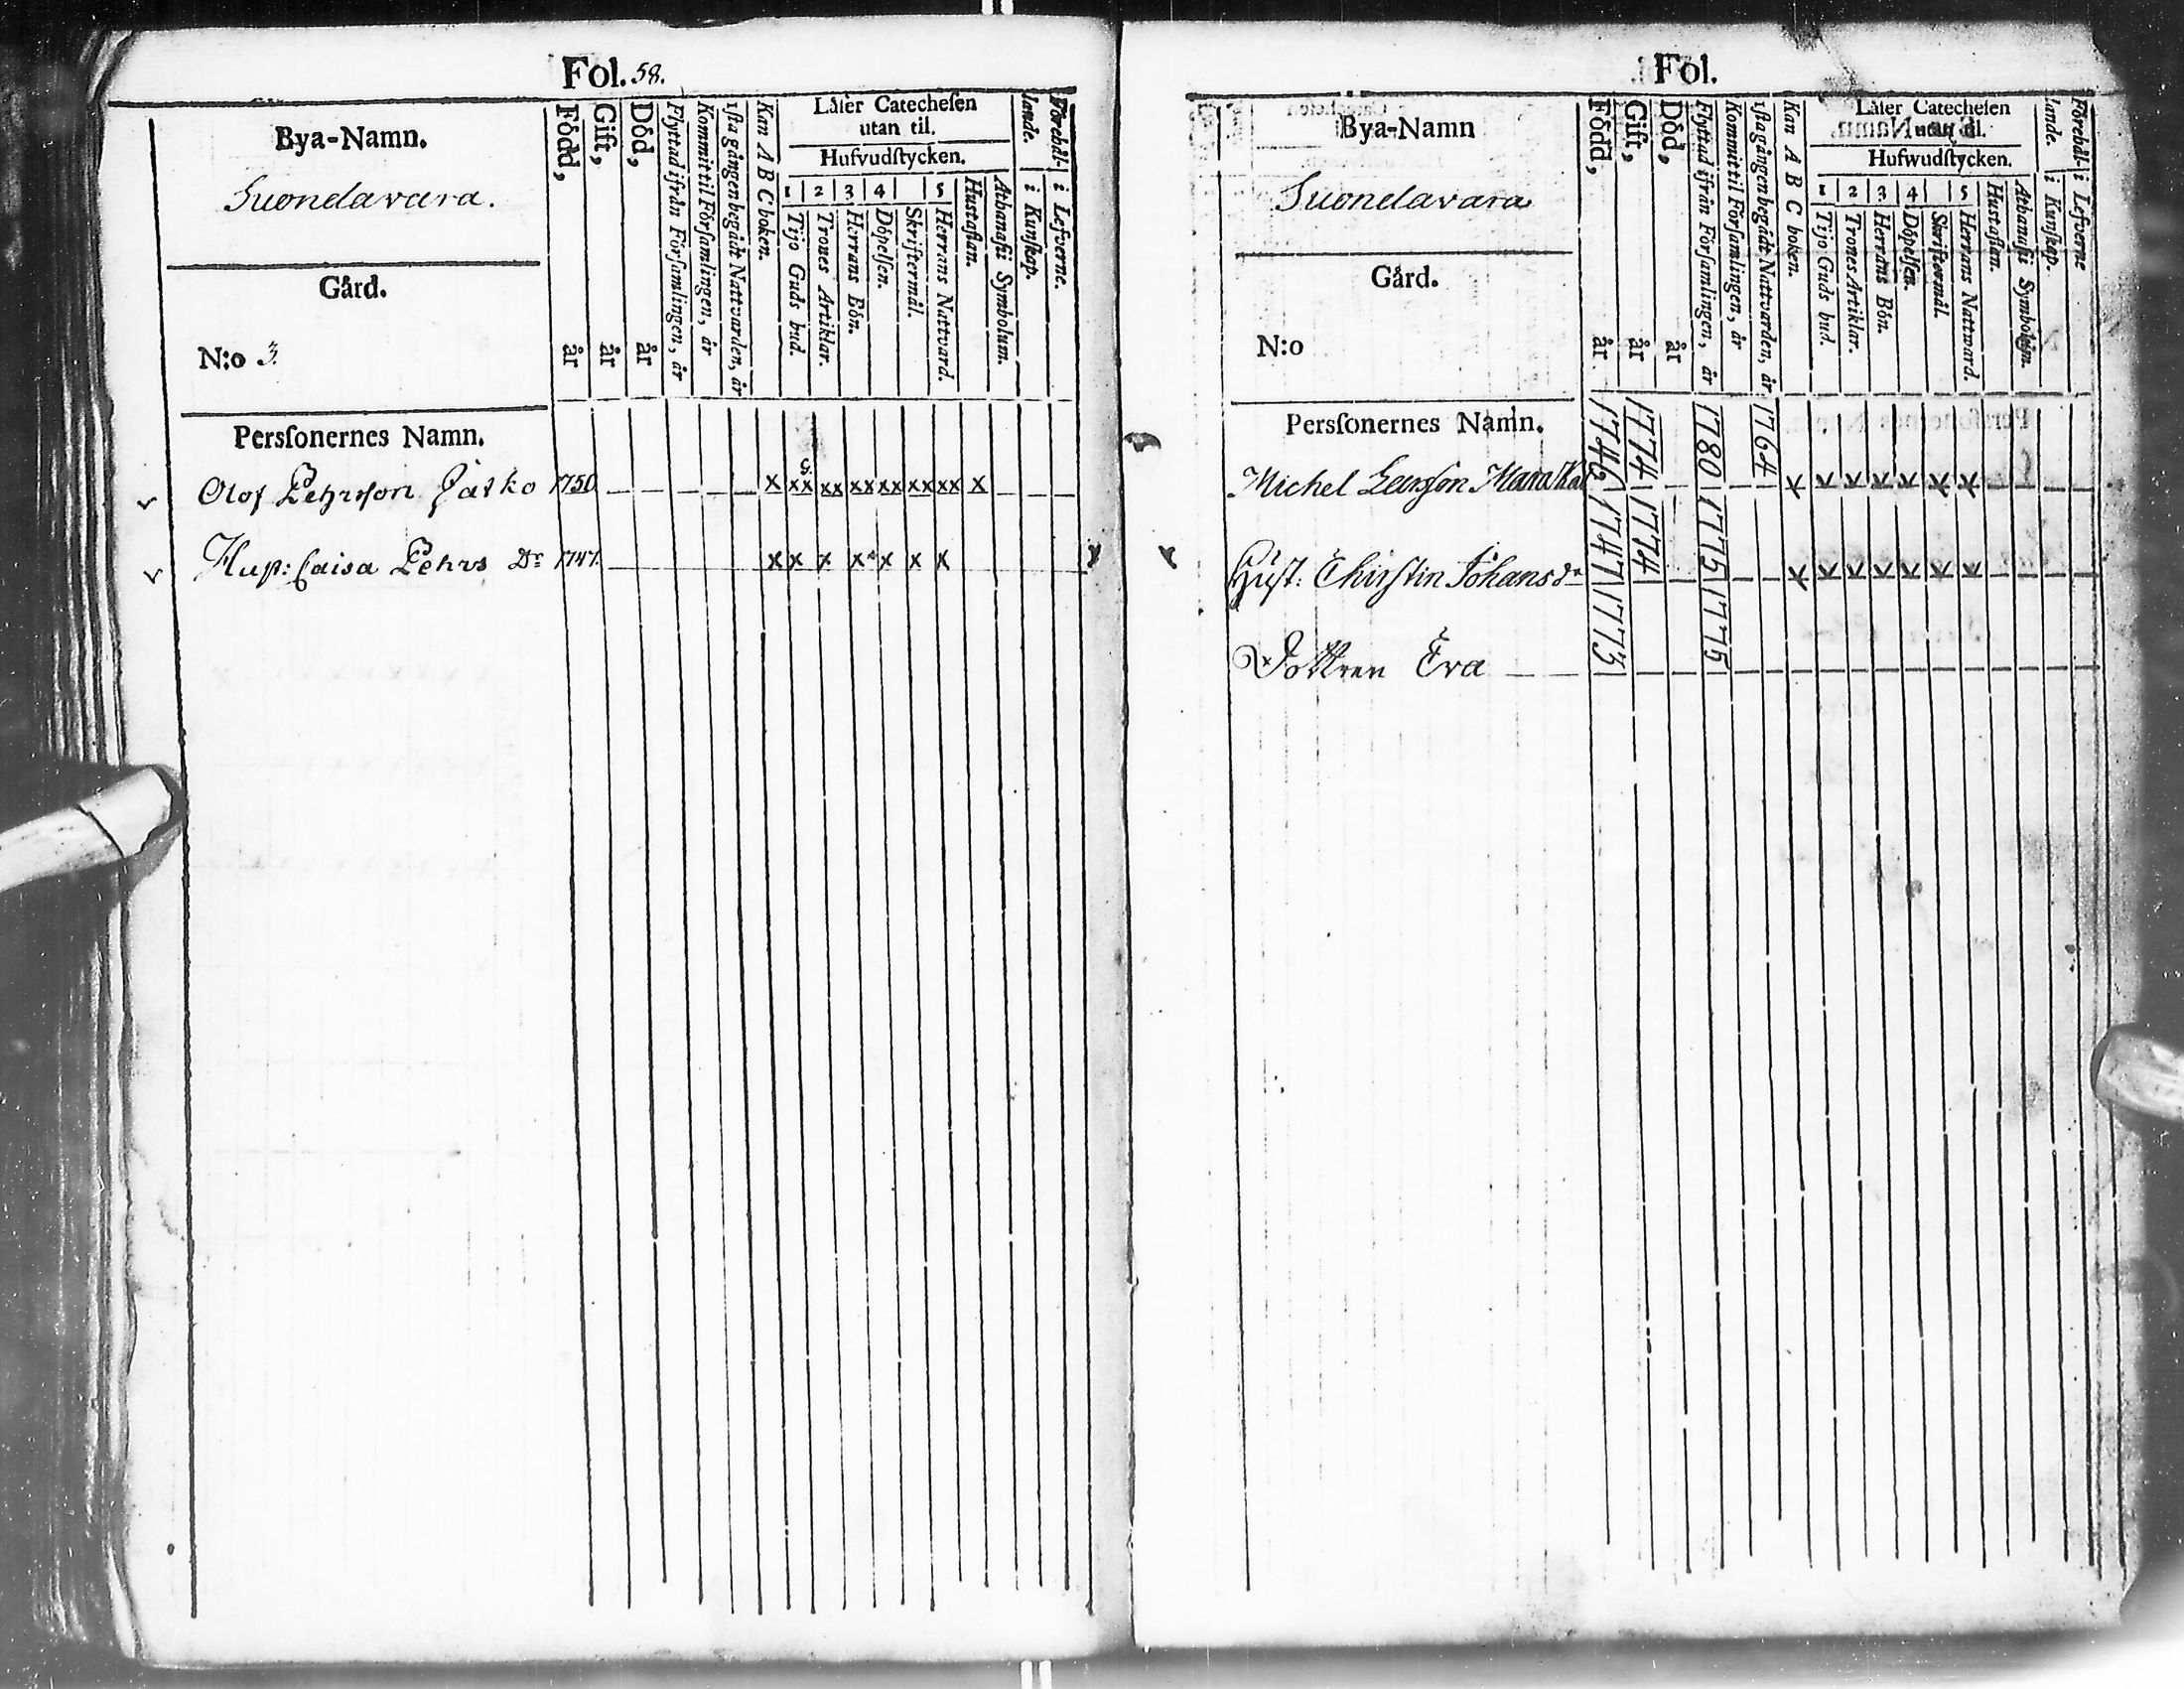 Fol. 58.
Bya-Namn.
Suondavara.
Gård.
N:o 3.
Född, år
Gift, år
Död, år
Flyttad ifrån Församlingen, år
Kommit til Församlingen, år
1sta gången begådt Nattvarden, år
Kan A B C boken.
Läser Catechesen
utan til.
Hufvudſtycken.
1 2 3 4 5
Tijo Guds bud.
Trones Artiklar.
Herrans Bön.
Döpelſen.
Skriftermål.
Herrans Nattvard.
Hustaflan.
Athanaſii Symbolum.
Förehål-
lande.
i Kunſkap.
i Lefverne.
Perſſonernes Namn.
Olof Pehrsson 1750 x xx xx xx xx xx xx x
Hust: Caisa Pehrs Dr 1747. x x x x x x x
Fol.
Bya-Namn
Suondavara
Gård.
N:o
Född, år
Gift, år
Död, år
Flyttad ifrån Församlingen, år
Kommit til Församlingen, år
1sta gången begådt Nattvarden, år
Kan A B C boken.
Läser Catechesen
utan til.
Hufwudſtycken.
1 2 3 4 5
Tijo Guds bud.
Trones Artiklar.
Herrans Bön.
Döpelſen.
Skriftermål.
Herrans Nattward.
Hustaflan.
Athanaſii Symbolum.
Förehål-
lande.
i Kunſkap.
i Lefverne
Perſſonernes Namn.
Michel Larsson 1746 1774 1780 1764 x x x x x x x
Hust: Chirstin Johans dr 1747 1774 1775 x x x x x x x
Dottren Eva 1773 1775